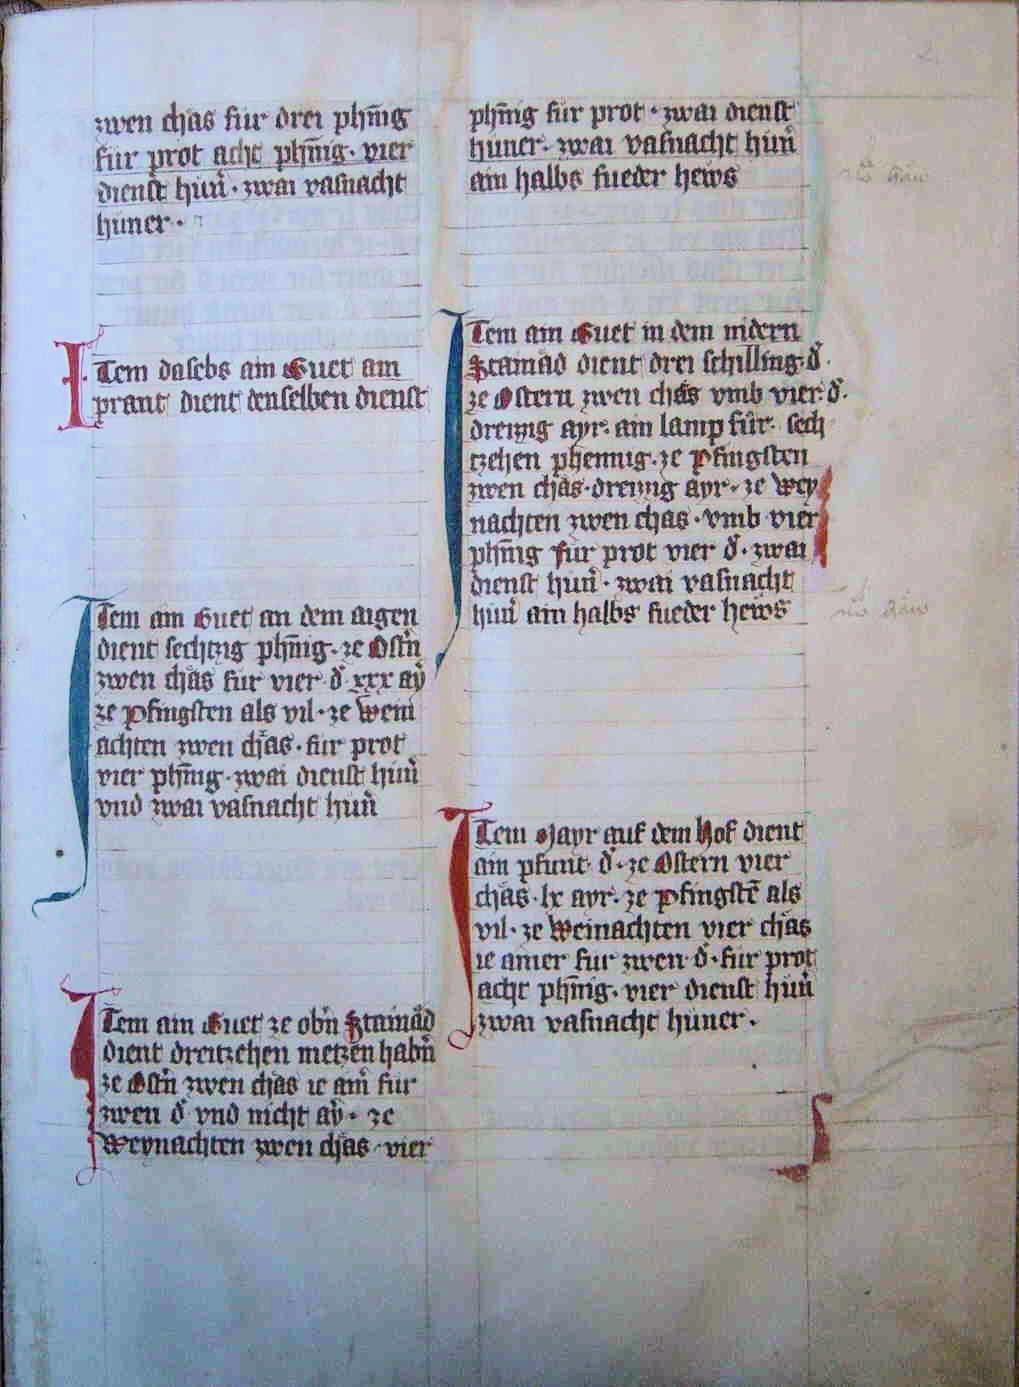 zwen chäs für drei phīnig
für prot acht phīnig · vier
dienst hün̄ · zwai vasnacht
hüner ·
Item daselbs ain Guet am
prant dient denselben dienst
Item ain Guet an dem aigen
dient sechtzig phīnig · ze Ostn̄
zwen chäs für vier d̄ xxx aÿ
ze Pfingsten als vil · ze Wein
achten zwen chäs · für prot
vier phīnig · zwai dienst hün̄
vnd zwai vasnacht hün̄
Item ain Guet ze obn̄ Stainäd
dient dreitzehen metzen habn̄
ze Ostn̄ zwen chäs ie aīn für
zwen d̄ vnd nicht aÿ · ze
Weynachten zwen chäs · vier
phīnig für prot · zwai dienst
hüner · zwai vasnacht hün̄
ain halbs fueder hews
Item ain Guet in dem nidern
Stainäd dient drei schilling · d̄ ·
ze Ostern zwen chäs vmb vier · d̄ ·
dreizzig ayr · ain lamp für · sech
tzehen phennig · ze Pfingsten
zwen chäs · dreizzig ayr · ze Wey
nachten zwen chäs · vmb vier
phīnig für prot vier d̄ · zwai
dienst hün̄ · zwai vasnacht
hün̄ ain halbs fueder hews
Item Mayr auf dem Hof dient
ain pfunt · d̄ · ze Ostern vier
chäs · lx ayr · ze Pfingstē als
vil · ze Weinachten vier chäs
ie ainer für zwen · d̄ · für prot
acht phīnig · vier dienst hün̄
zwai vasnacht hüner ·